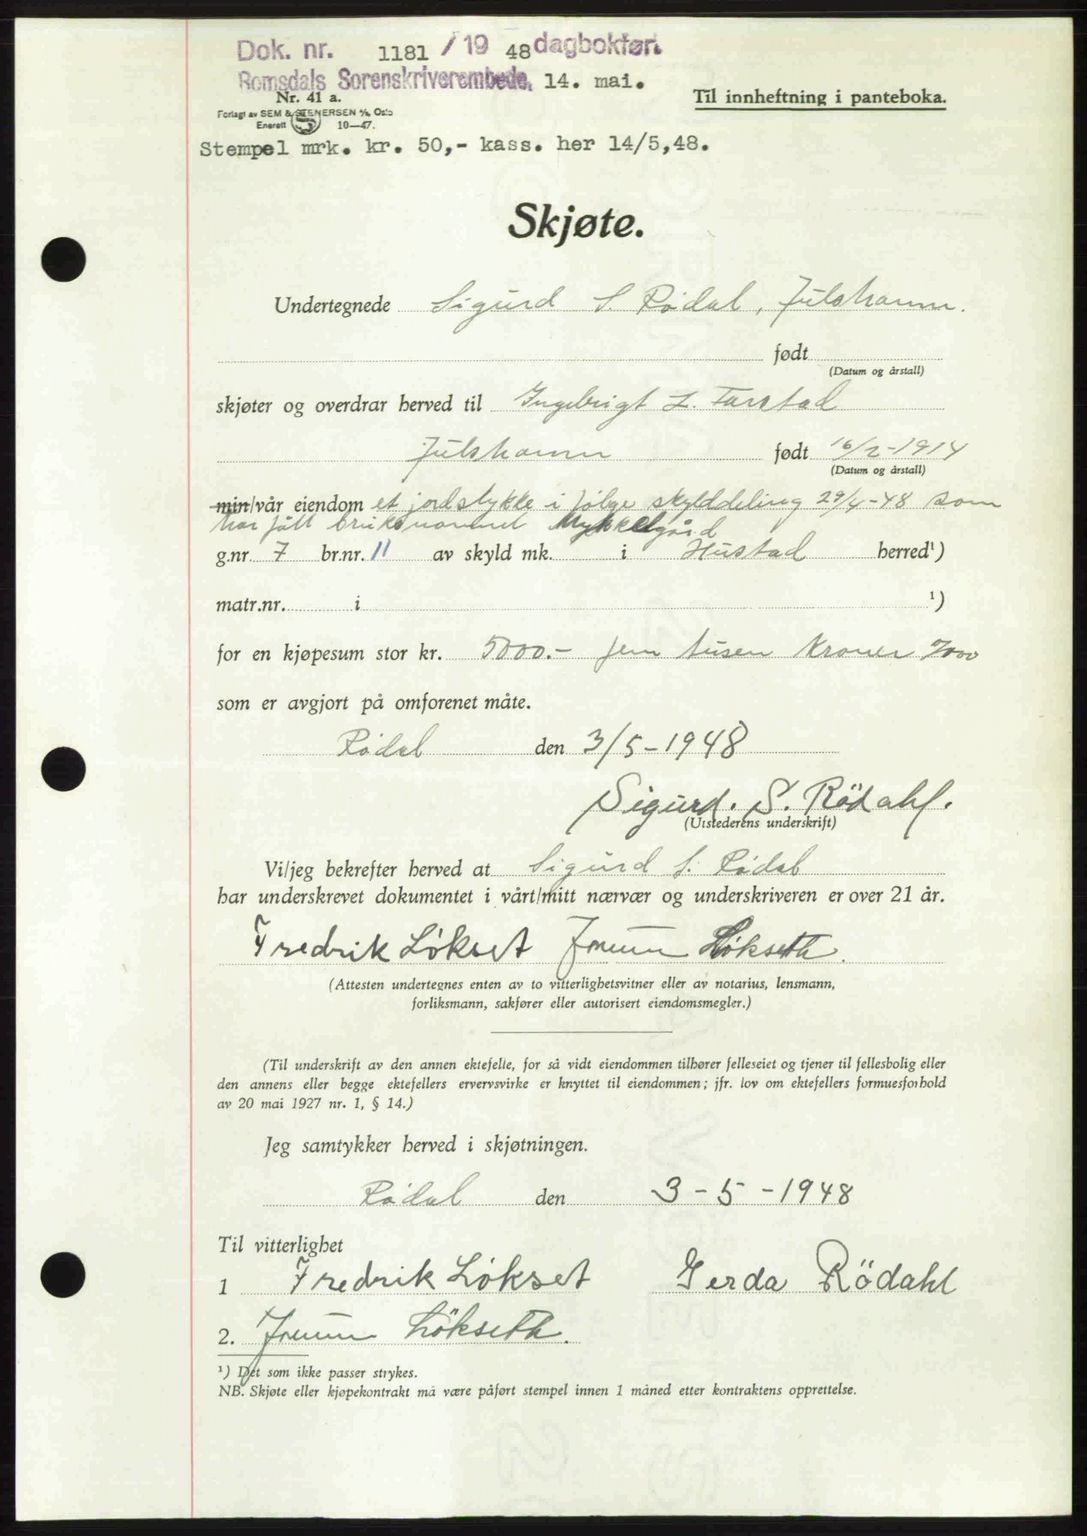 Dok. nr. 1181 / 19 48 dagbokført.
Romsdals Sorenskriverembede, 14. mai.
Nr. 41 a.
Til innheftning i panteboka.
Forlagt av SEM & STENERSEN A/S, Oslo
Enerett 10—47.
Stempel mrk. kr. 50,- kass. her 14/5,48.
Skjøte.
Undertegnede Sigurd S. Rødal, Julshamn.
født
(Datum og årstall)
skjøter og overdrar herved til Ingebrigt L. Farstad
Julshamn født 16/2-1914
(Datum og årstall)
min/vår eiendom et jordstykke i følge skylddeling 29/4-48 som
har fått bruksnavnet Mykkelgård
g.nr. 7 br.nr. 11 av skyld mk. i Hustad herred¹)
matr.nr. i ¹)
for en kjøpesum stor kr. 5000.- fem tusen kroner
som er avgjort på omforenet måte.
Rødal den 3/5-1948
Sigurd. S. Rödahl.
(Utstederens underskrift)
Vi/jeg bekrefter herved at Sigurd S. Rødal
har underskrevet dokumentet i vårt/mitt nærvær og underskriveren er over 21 år.
Fredrik Løkset Løkseth.
(Attesten undertegnes enten av to vitterlighetsvitner eller av notarius, lensmann,
forliksmann, sakfører eller autorisert eiendomsmegler.)
(Til underskrift av den annen ektefelle, for så vidt eiendommen tilhører felleseiet og tjener til fellesbolig eller
den annens eller begge ektefellers ervervsvirke er knyttet til eiendommen; jfr. lov om ektefellers formuesforhold
av 20 mai 1927 nr. 1, § 14.)
Jeg samtykker herved i skjøtningen.
Rødal den 3-5-1948
Til vitterlighet
1 Fredrik Løkset Gerda Rödahl
2. Lökseth.
¹) Det som ikke passer strykes.
NB. Skjøte eller kjøpekontrakt må være påført stempel innen 1 måned etter kontraktens opprettelse.